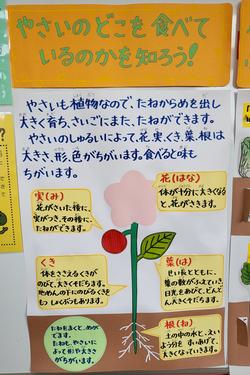 やさいのどこを食べて
いるのかを知ろう!
やさいも植物なので、たねからめを出し
大きく育ち、さいごにまた、たねができます。
やさいのしゅるいによって、花、実、くき、葉、根は
大きさ、形、色がちがいます。食べると味も
ちがいます。
花(はな)
体が十分に大きくなる
と、花がさきます。
実(み)
花がさいた後に、
実がつき、その後に、
たねができます。
くき
体をささえるくきが
のびて、大きくそだちます。
やめんの下にのびるくき
もしくぶつもあります。
葉(は)
せい長とともに、
葉の数がふえていき、
日光をあびて、どんど
ん大きくそだちます。
根(ね)
土の中の水と、えい
よう分をすいあげて、
大きくなっていきます。
たねをまくと、めが
でます。
たねも、やさいに
よって形や大きさ
がちがいます。